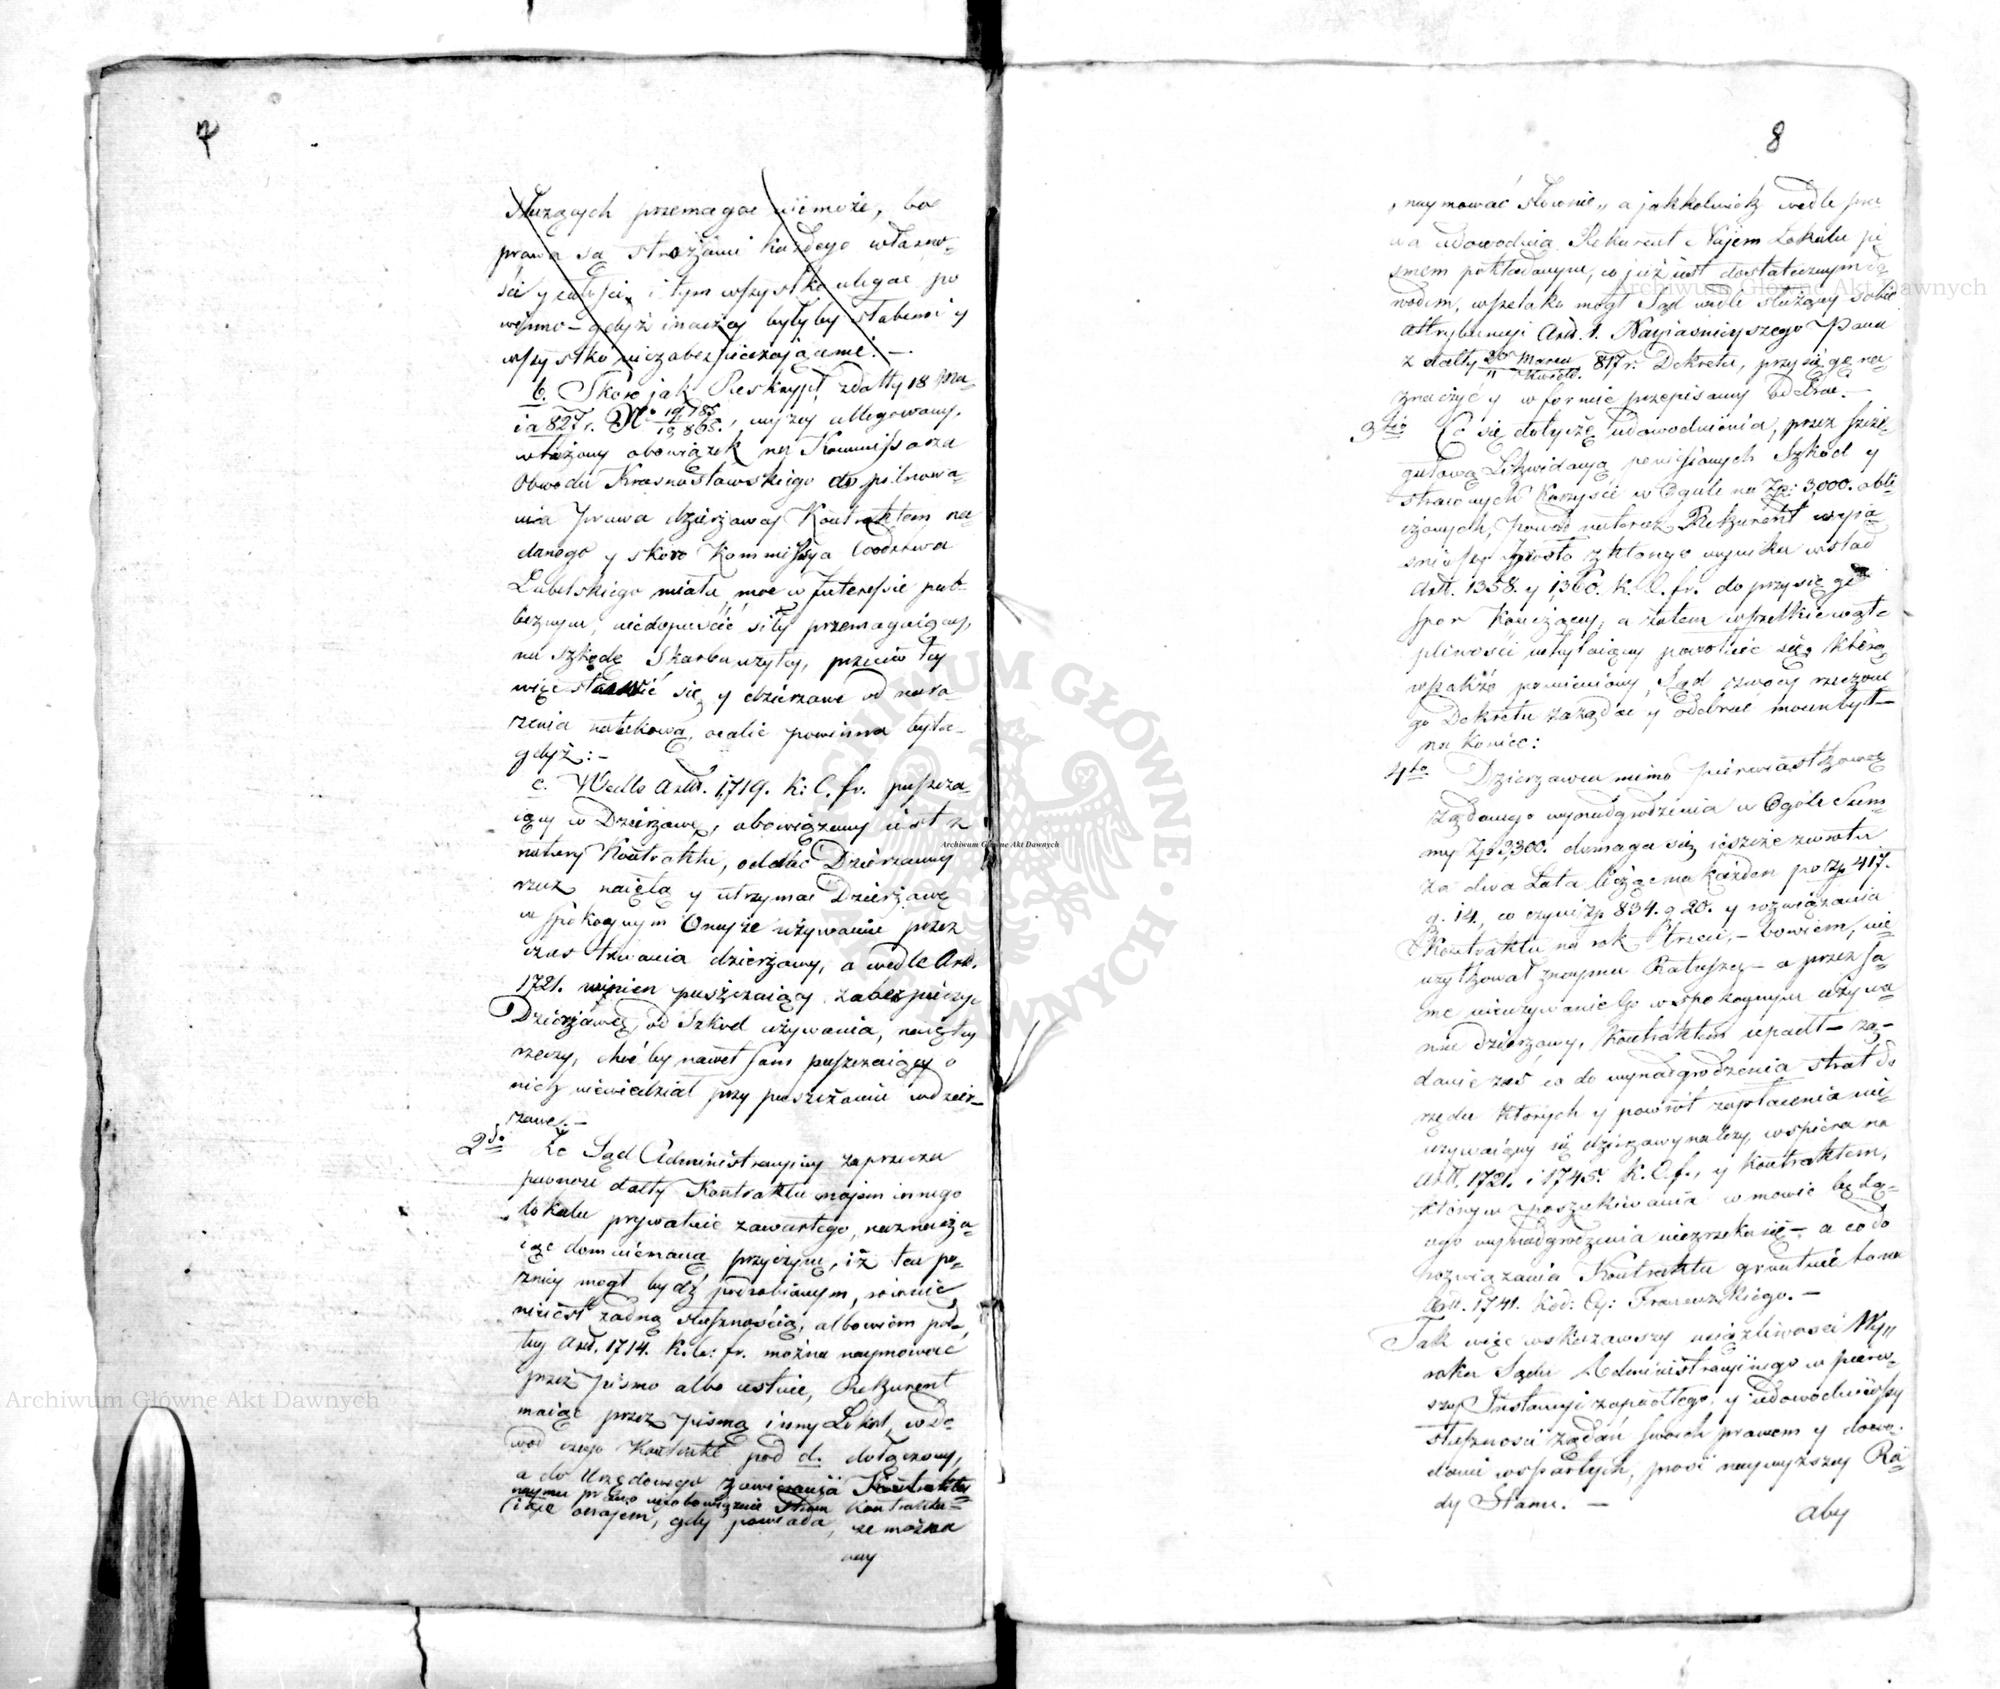 7
Służących przemagać niemoże, bo
prawa są strożami każdego własno-
ści y całości, i tym wszystko ulegać po
winno – gdyż inaczey byłyby słabemi y
wszystko niezabezpieczaiącemi. –
b. Skoro jak Reskrypt zdatty 18 Ma-
ia 827 r. No 19785/19865., wyżey allegowany,
włożony obowiązek na Kommissarza
Obwodu Krasnostawskiego do pilnowa-
nia Prawa dzierżawcy Kontraktem na-
danego y skoro Kommissya Woodztwa
Lubelskiego miała moc w Interessie pub-
licznym, niedopuścić siły przemagaiącey,
na szkodę Skarbu użytey, przeciw tey
więc stawić się y dzierżawę od nara-
żenia takową, ocalić powinna była –
gdyż: –
c. Wedle Artt. 1,719. K: C. fr. puszcza-
iący w Dzierżawę, obowiązany iest z
natury Kontraktu, oddać Dzierżawcy
rzecz naiętą y utrzymać Dzierżawcę
w spokoynym Oneyże używanie przez
czas trwania dzierżawy, a wedle Art.
1721. winien puszczaiący zabezpieczyć
Dzierżawcę, od Szkod używania, naiętey
rzeczy, choćby nawet sam puszczaiący o
nich niewiedział przy puszczaniu w dzier-
żawę. –
2do Że Sąd Administracyiny zaprzecza
pewność datty Kontraktu najem innego
lokalu prywatnie zawartego, naznacza-
iąc domniemaną przyczynę, iż ten pó-
źniey mogł bydź podrobionym, rownie
nieiest żadną słusznością, albowiem po-
dług Artt. 1714. K. C: fr. można naymować
przez Pismo albo ustnie, Rekurent
maiąc przez pismo inny Lokal, w do-
wod czego Kontrakt pod d. dołączony,
a do Urzędowego zawierania Kontraktu
naymu prawo nieobowiązuie Stron Kontraktu-
iące onajem, gdy powiada, że można
nay
8
„naymować słownie„ a jakkolwiek wedle pra-
wa udowodnia Rekurent Najem Lokalu pi-
smem pokładanym, co już iest dostatecznym do-
wodem, wszelako mogł Sąd wedle służącey sobie
attrybucyi Artt. 1. Nayiaśnieyszego Pana
z datty 20 Marca/„ Kwiet. 817 r. Dekretu, przysięgę na-
znaczyć y w formie przepisaney odebrać. –
3tio Co się dotycze udowodnienia, przez szcze-
gułową Likwidacyą poniesionych Szkod y
straconych Korzyści w Ogule na Zp: 3,000. obli-
czonych, powod natoraz Rekurent wyia-
śniwszy prosto z ktorego wynika w ślad
Artt. 1358. y 1,360. K. C. fr. do przysięgi
spor kończącey, a zatem wszelkie wąt-
pliwości uchylaiącey powołuie się, ktorą
wszakże pomieniony Sąd z mocy rzeczone-
go Dekretu zażądać y odebrać mocen był –
na koniec:
4to Dzierżawca mimo Pierwiastkowie
żądanego wynadgrodzenia w Ogóle Sum-
my Zp 3,300. domaga się ieszcze zwrotu
za dwa Lata licząc na każden po Zp 417.
g. 14., co czyni Zp 834. g 20. y rozwiązania
Kontraktu na rok trzeci, – bowiem, nie
użytkował z naymu Ratuszy – a przez sa-
me nieużywanie Go w spokoynym używa-
niu dzierżawy, Kontraktem upadł – żą-
danie zaś co do wynadgrodzenia strat do
rzędu ktorych y powrót zapłacenia nie
używaiącey się dzierżawy należy, wspiera na
Artt. 1721. i 1745. K. C. f., y Kontraktem,
ktorym poszukiwania w mowie będą-
cego wynadgrodzenia niezrzeka się – a co do
rozwiązania Kontraktu gruntuie to na
Artt. 1741. Kod: Cy: Francuzkiego. –
Tak więc wskazawszy uciążliwości Wy„
roku Sądu Administracyinego w pierw-
szey Instancyi zapadłego, y udowodniwszy
słuszności żądań swoich prawem y dowo-
dami wspartych, prosi naywyższey Ra-
dy Stanu. –
aby
Archiwum Główne Akt Dawnych
Archiwum Główne Akt Dawnych
Archiwum Główne Akt Dawnych
ARCHIWUM GŁÓWNE AKT DAWNYCH